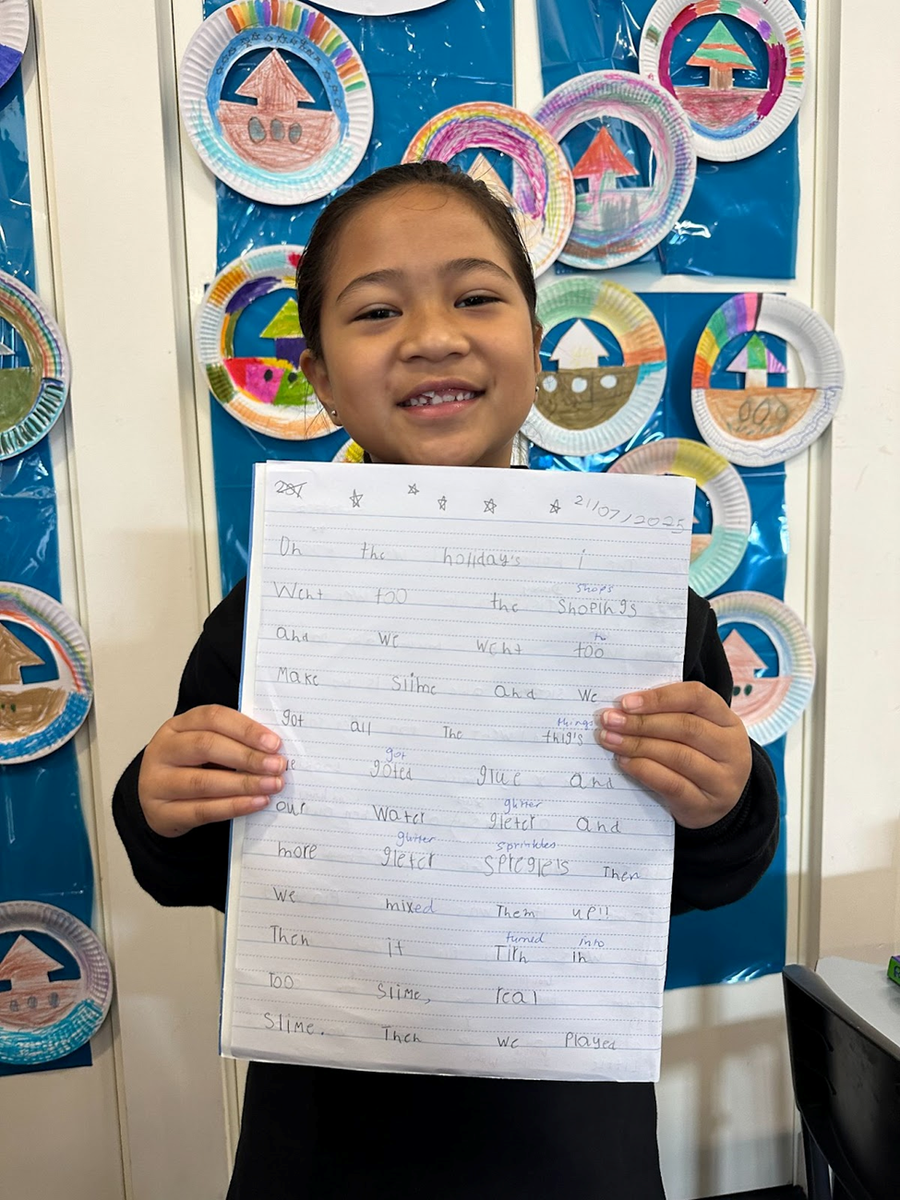 21/07/2025
On the holiday's i
shops
Went too the shoping's
to
and we went too
Make slime and we
things
got all The thig's
got
we goted glue and
glitter
our water gleter and
glitter sprinkles
more gleter spregle's Then
we mixed Them up!!
turned into
Then it Tirn in
Too slime, real
Slime. Then we played